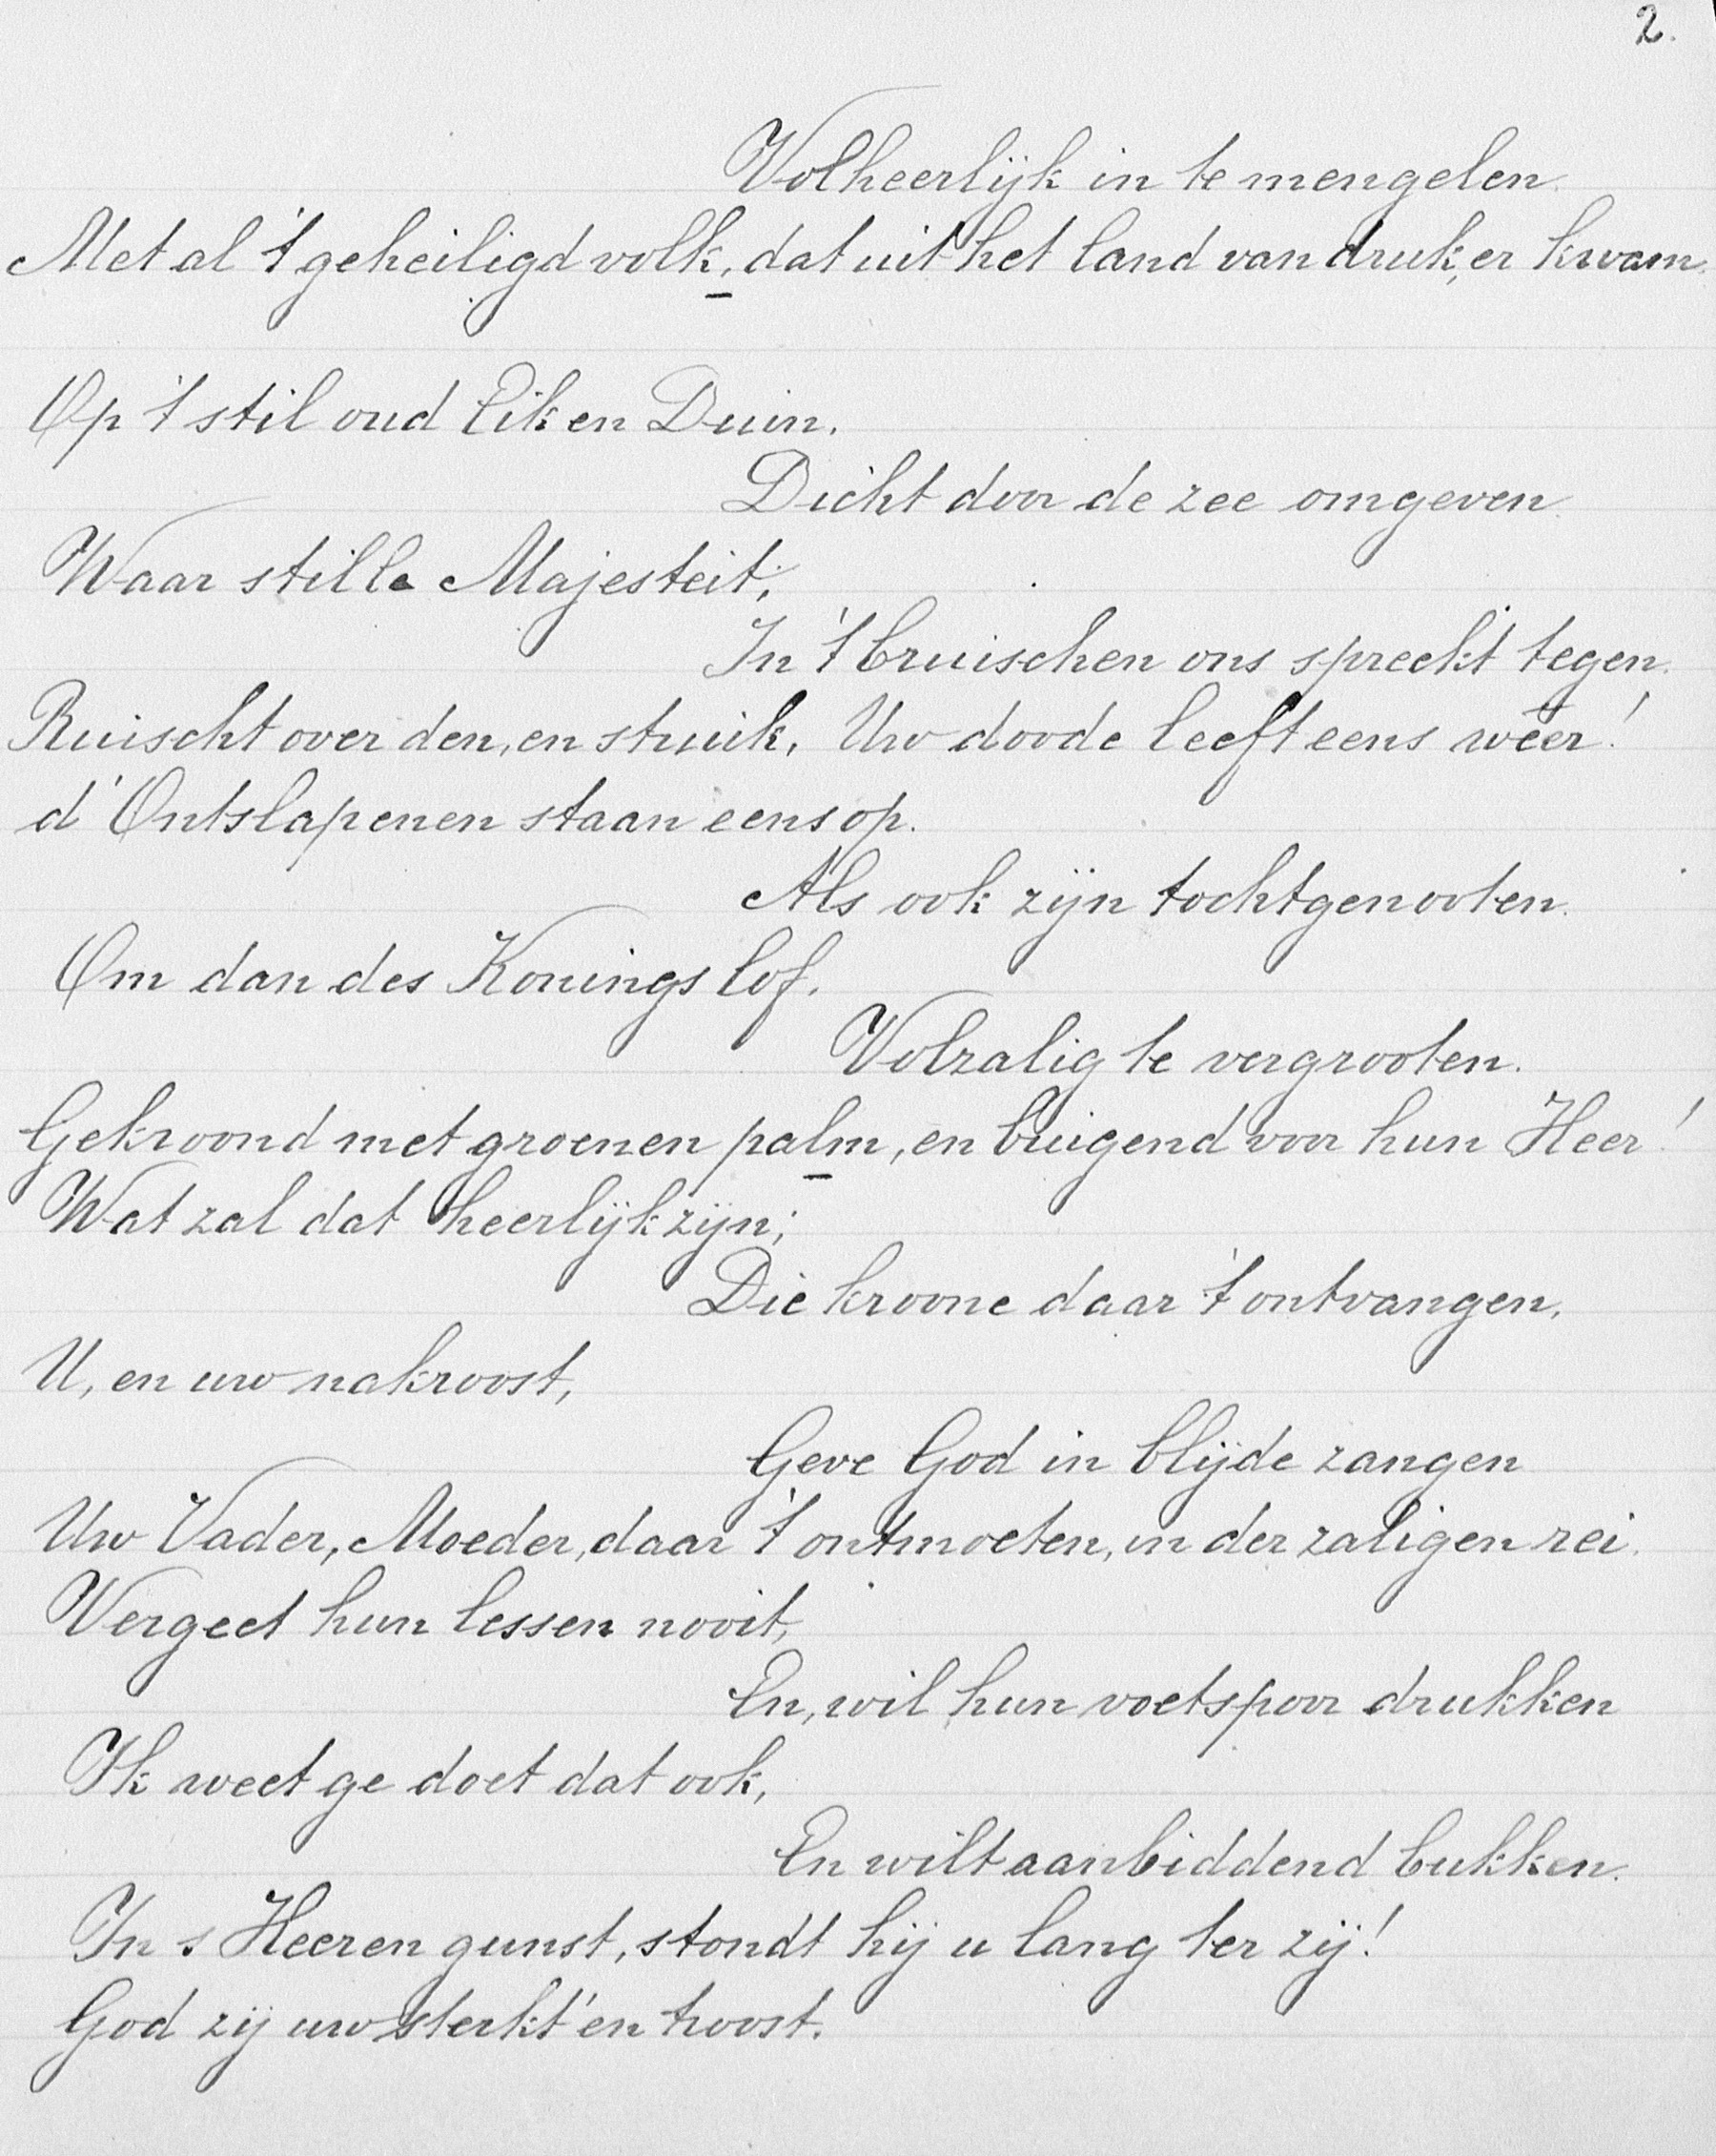 2.
Volheerlijk in te mengelen.
Met al 't geheiligd volk, dat uit het land van druk, er kwam.
Op 't stil oud Eik en Duin.
Dicht door de zee omgeven.
Waar stille Majesteit,
In 't bruischen ons spreekt tegen.
Ruischt over den, en struik, Uw doode leeft eens wêer!
d' Ontslapenen staan eens op.
Als ook zijn tochtgenooten.
Om dan des Konings lof.
Volzalig te vergrooten.
Gekroond met groenen palm, en buigend voor hun Heer!
Wat zal dat heerlijk zijn;
Die kroone daar 't ontvangen,
U, en uw nakroost,
Geve God in blijde zangen
Uw Vader, Moeder, daar 't ontmoeten, in der zaligen rei.
Vergeet hun lessen nooit,
En, wil hun voetspoor drukken
Ik weet ge doet dat ook,
En wilt aanbiddend bukken.
In s Heeren gunst, stondt hij u lang ter zij!
God zij uw sterkt' en troost.